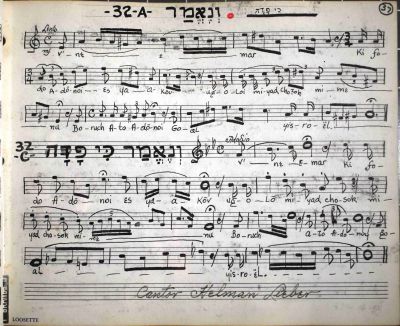 -32-A- וְנֶאֱמַר כִּי פָדָה 32
v' ne e mar Ki fo
do A-dō-noi-- Es ya a- Kōv u-g-o-Loi mi-yad chozok mi-me
nu Bo-ruch A-to A-dō-noi Go-al yis-ro-ēl.
32 -C- וְנֶאֱמַר כִּי פָדָה
v' ne- E-mar Ki fo
do A-dō- noi Es ya- a Kōv ug-o-Lō mi yad cho-sok mi-
yad cho-sok mi-me nu Bo-ruch a-to A-do-noy Go-
al yis-ro-ēl.
Cantor Helman Lieber
LOOSETTE